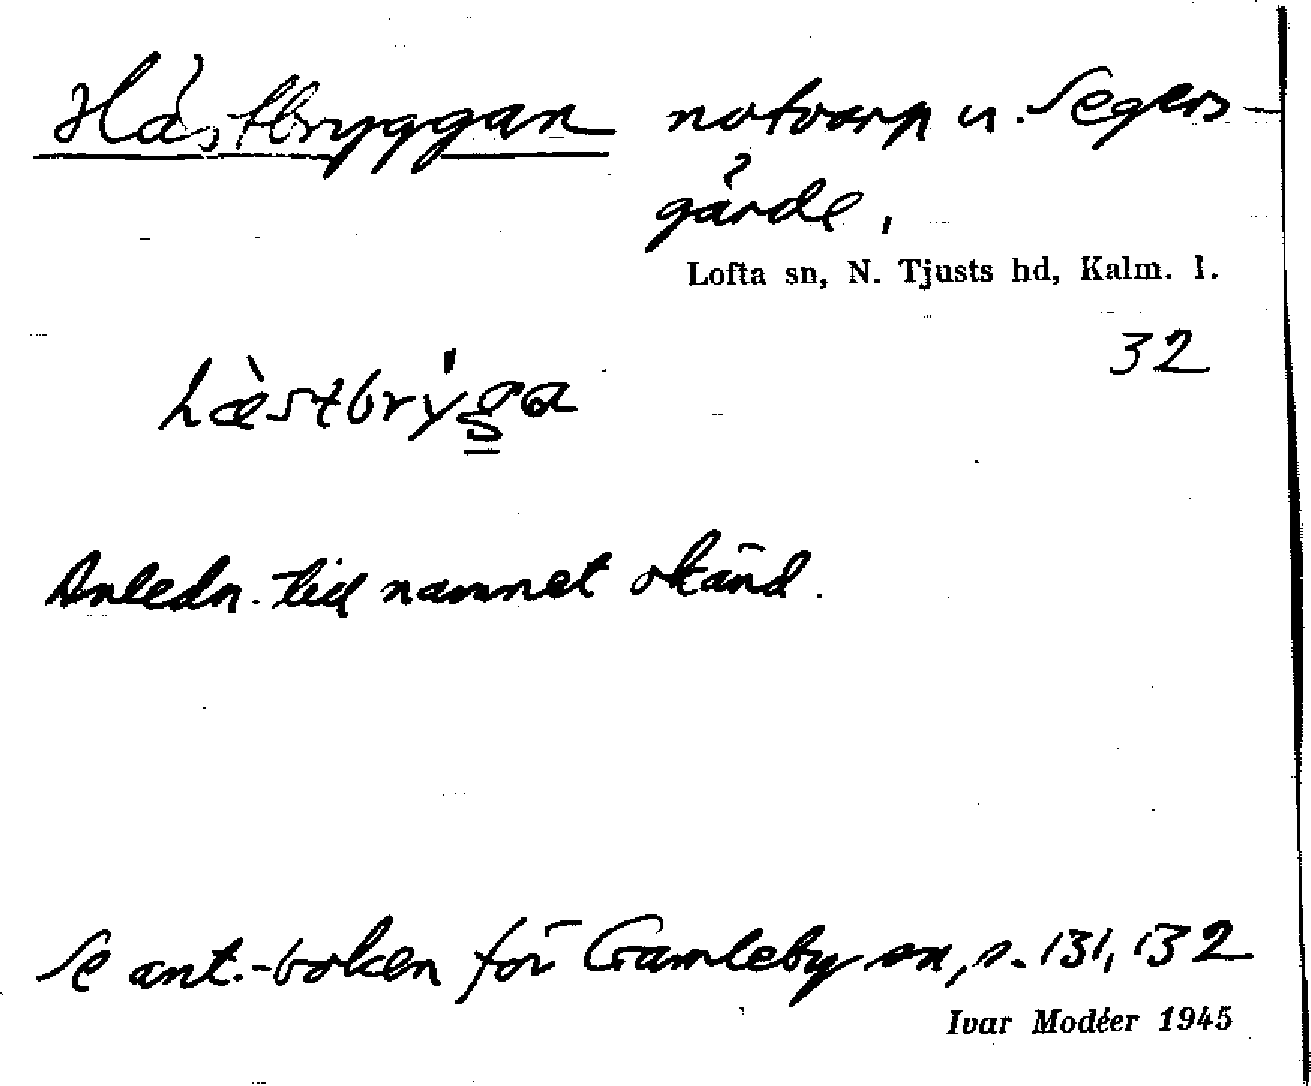 Hästbryggan notvarp u. Segers-
gärde.
Lofta sn, N. Tjusts hd, Kalm. l.
32
hæ̀stbrýga
Anledn. till namnet okänd.
Se ant.-boken för Gamleby sn, s. 131, 132
Ivar Modéer 1945